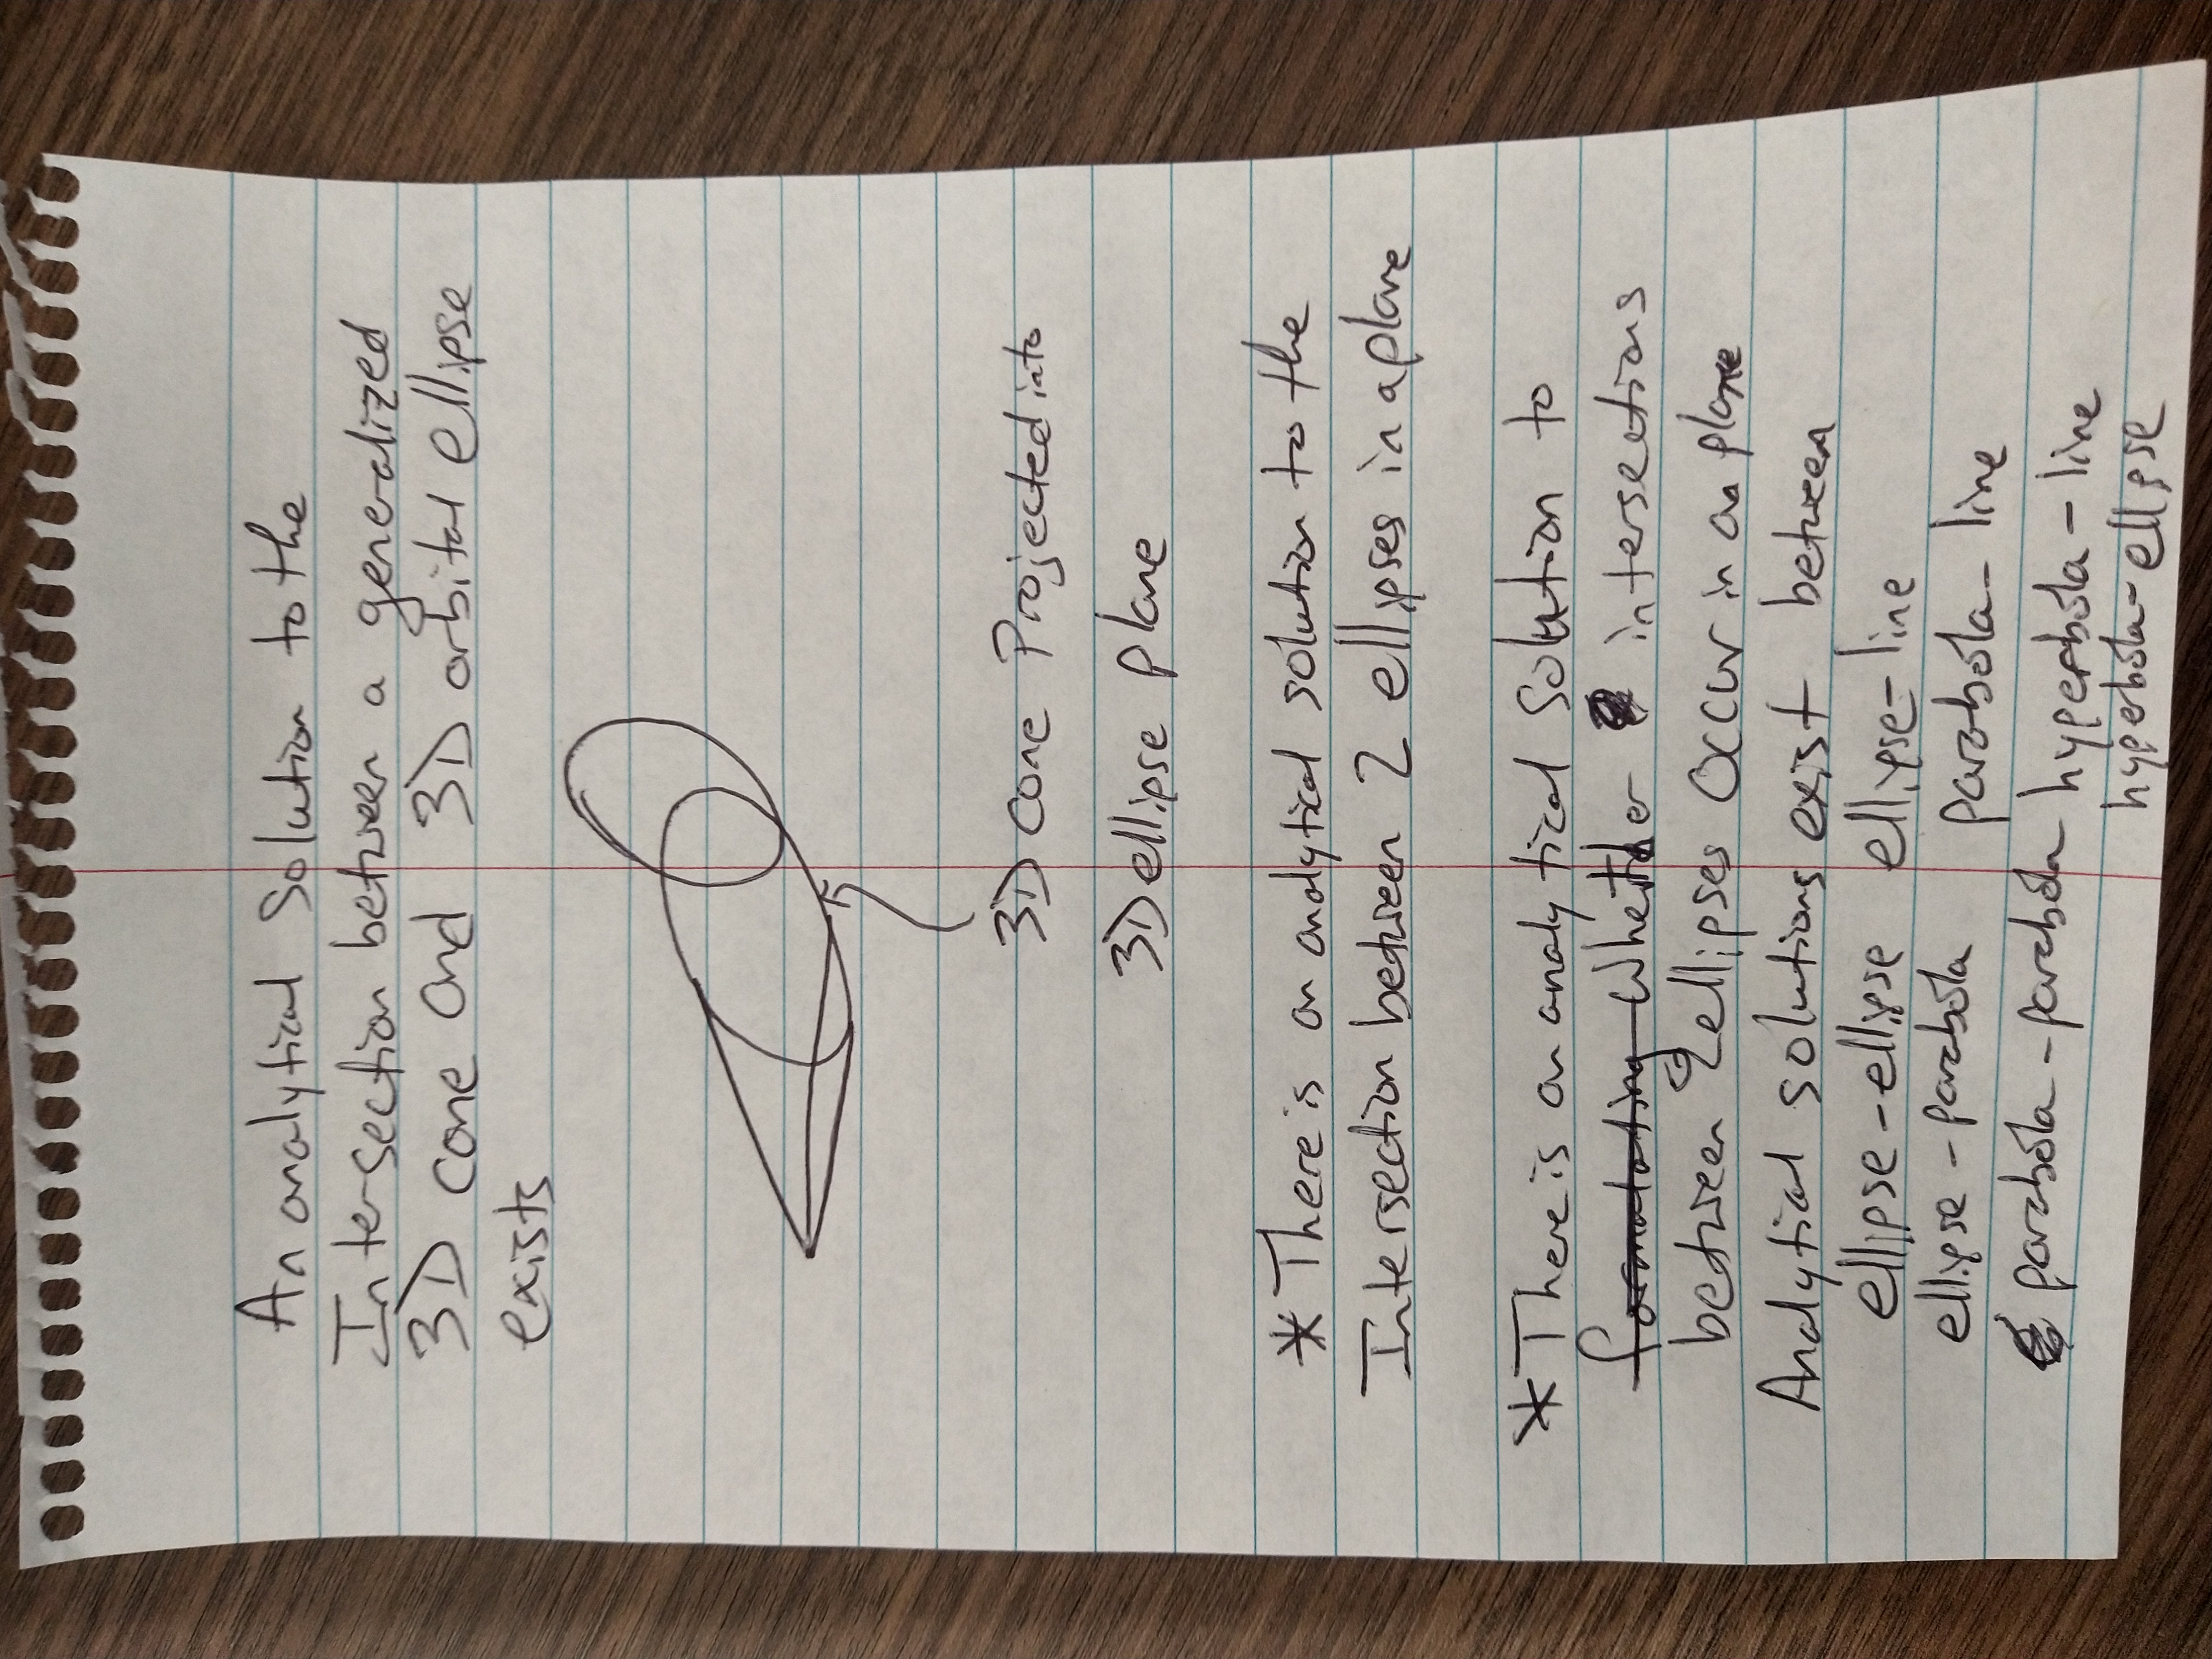 An analytical Solution to the
Intersection between a generalized
3D cone and 3D orbital ellipse
exists
3D cone Projected into
3D ellipse plane
* There is an analytical solution to the
Intersection between 2 ellipses in a plane
* There is an analytical solution to
whether intersections
between 2 ellipses occur in a plane
Analytical solutions exist between
ellipse-ellipse ellipse-line
ellipse-parabola parabola-line
parabola-parabola hyperbola-line
hyperbola-ellipse